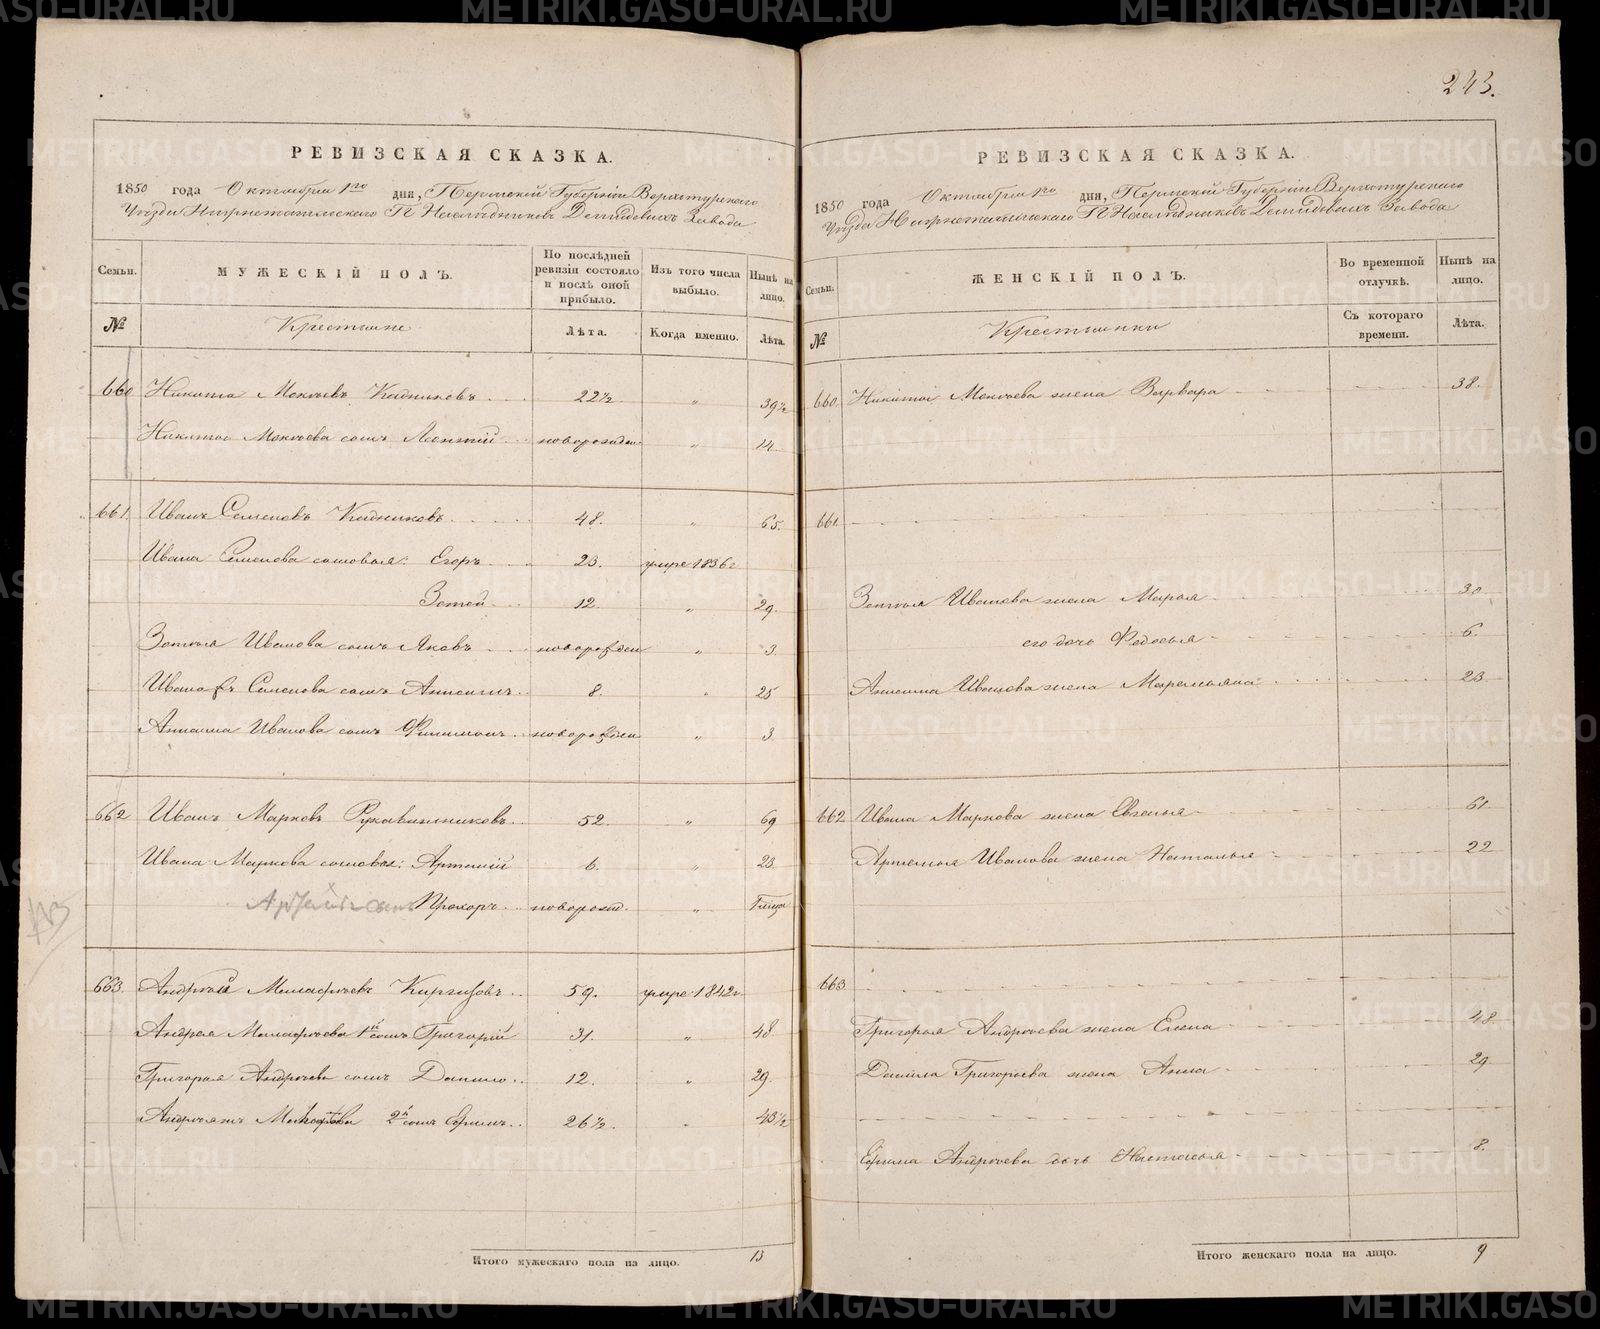 243.
РЕВИЗСКАЯ СКАЗКА.
1850 года Октября 1го дня, Пермской Губерніи Верхотурскаго
Уѣзда Нижнетагильскаго Г.г. Наслѣдниковъ Демидовыхъ Завода
Семьи. МУЖЕСКІЙ ПОЛЪ. По послѣдней ревизіи состояло и послѣ оной прибыло. Изъ того числа выбыло. Нынѣ на лицо.
№ Крестьяне Лѣта. Когда именно. Лѣта.
660 Никита Мокѣевъ Кадниковъ 22½ " 39½
Никиты Мокѣева сынъ Леонтій новорожден " 14
661. Иванъ Семеновъ Кадниковъ 48. " 65.
Ивана Семенова сыновья: Егоръ 23. умре 1836г
Зотей 12. " 29
Зотея Иванова сынъ Яковъ новорожден " 3.
Ивана Семенова сынъ Анисимъ 8. " 25
Анисима Иванова сынъ Филимонъ новорожден " 3
662 Иванъ Марковъ Рукавишниковъ 52. " 69
Ивана Маркова сыновья: Артемій 6. " 23
сынъ Прохоръ новорожд. "
663. Андрей Малафѣевъ Киргизовъ 59. умре 1842г
Андрея Малафѣева 1й сынъ Григорій 31. " 48
Григорья Андрѣева сынъ Данило 12. " 29
2й сынъ Ефимъ 26½ " 43½
Итого мужескаго пола на лицо. 13
РЕВИЗСКАЯ СКАЗКА.
1850 года Октября 1го дня, Пермской Губерніи Верхотурскаго
Уѣзда Нижнетагильскаго Г.г. Наслѣдниковъ Демидовыхъ Завода
Семьи. ЖЕНСКІЙ ПОЛЪ. Во временной отлучкѣ. Нынѣ на лицо.
№ Крестьянки Съ котораго времени. Лѣта.
660. Никиты Мокѣева жена Варвара 38.
661.
Зотея Иванова жена Марья 30
его дочь Федосья 6.
Анисима Иванова жена Маремьяна 23
662 Ивана Маркова жена Евгенья 61
Артемья Иванова жена Наталья 22
663
Григорья Андрѣева жена Елена 48
Данила Григорьева жена Анна 29
Ефима Андрѣева дочь Настасья 8.
Итого женскаго пола на лицо. 9
METRIKI.GASO-URAL.RU